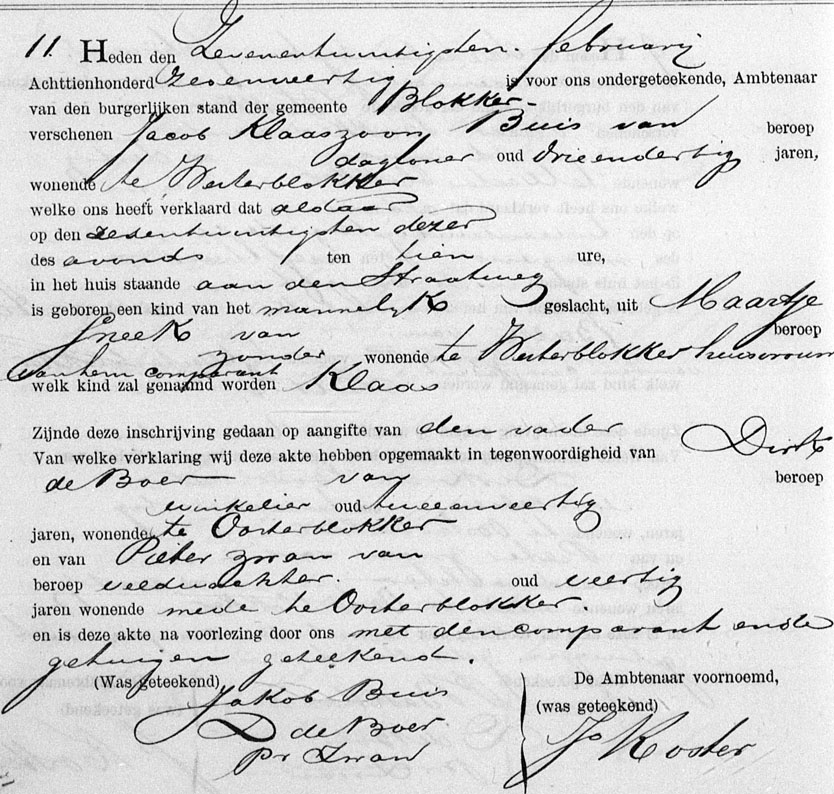 11. Heden den Zevenentwintigsten februarij
Achttienhonderd zesenveertig is voor ons ondergeteekende, Ambtenaar
van den burgerlijken stand der gemeente Blokker
verschenen Jacob Klaaszoon Buis van beroep
dagloner oud drieendertig jaren,
wonende te Westerblokker
welke ons heeft verklaard dat aldaar
op den zesentwintigsten dezer
des avonds ten tien ure,
in het huis staande aan den Straatweg
is geboren een kind van het mannelijk geslacht, uit Maartje
Sneek van beroep
zonder wonende te Westerblokker huisvrouw
van hem comparant
welk kind zal genaamd worden Klaas
Zijnde deze inschrijving gedaan op aangifte van den vader
Van welke verklaring wij deze akte hebben opgemaakt in tegenwoordigheid van Dirk
de Boer van beroep
winkelier oud tweeenveertig
jaren, wonende te Oosterblokker
en van Pieter Zwan van
beroep veldwachter. oud veertig
jaren wonende mede te Oosterblokker
en is deze akte na voorlezing door ons met den comparant en de
getuigen geteekend.
(Was geteekend) De Ambtenaar voornoemd,
Jakob Buis (was geteekend)
D de Boer
Pr Zwan Js Koster